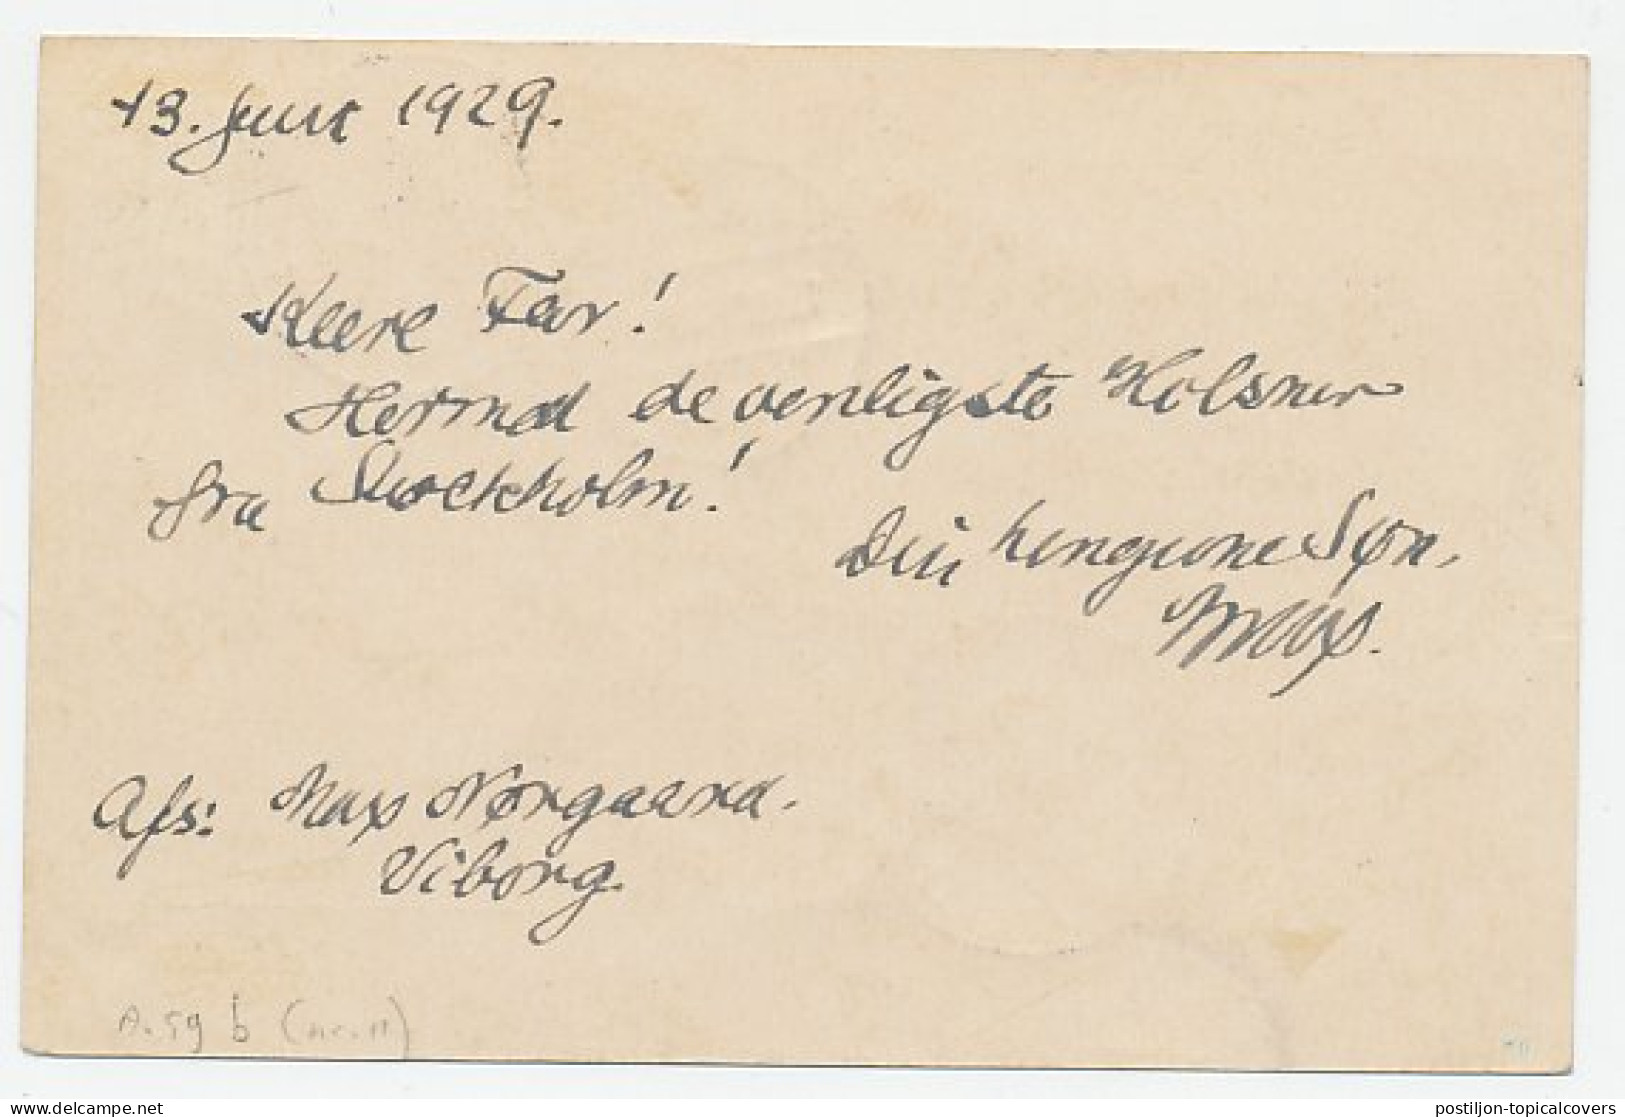 13. Juni 1929.
Kære Far!
Hermed de venligste Hilsner
fra Stockholm!
Din hengivne Søn,
Max.
Afs: Max Nørgaard.
Viborg.
A. 59 b (nr. 11)
postiljon-topicalcovers